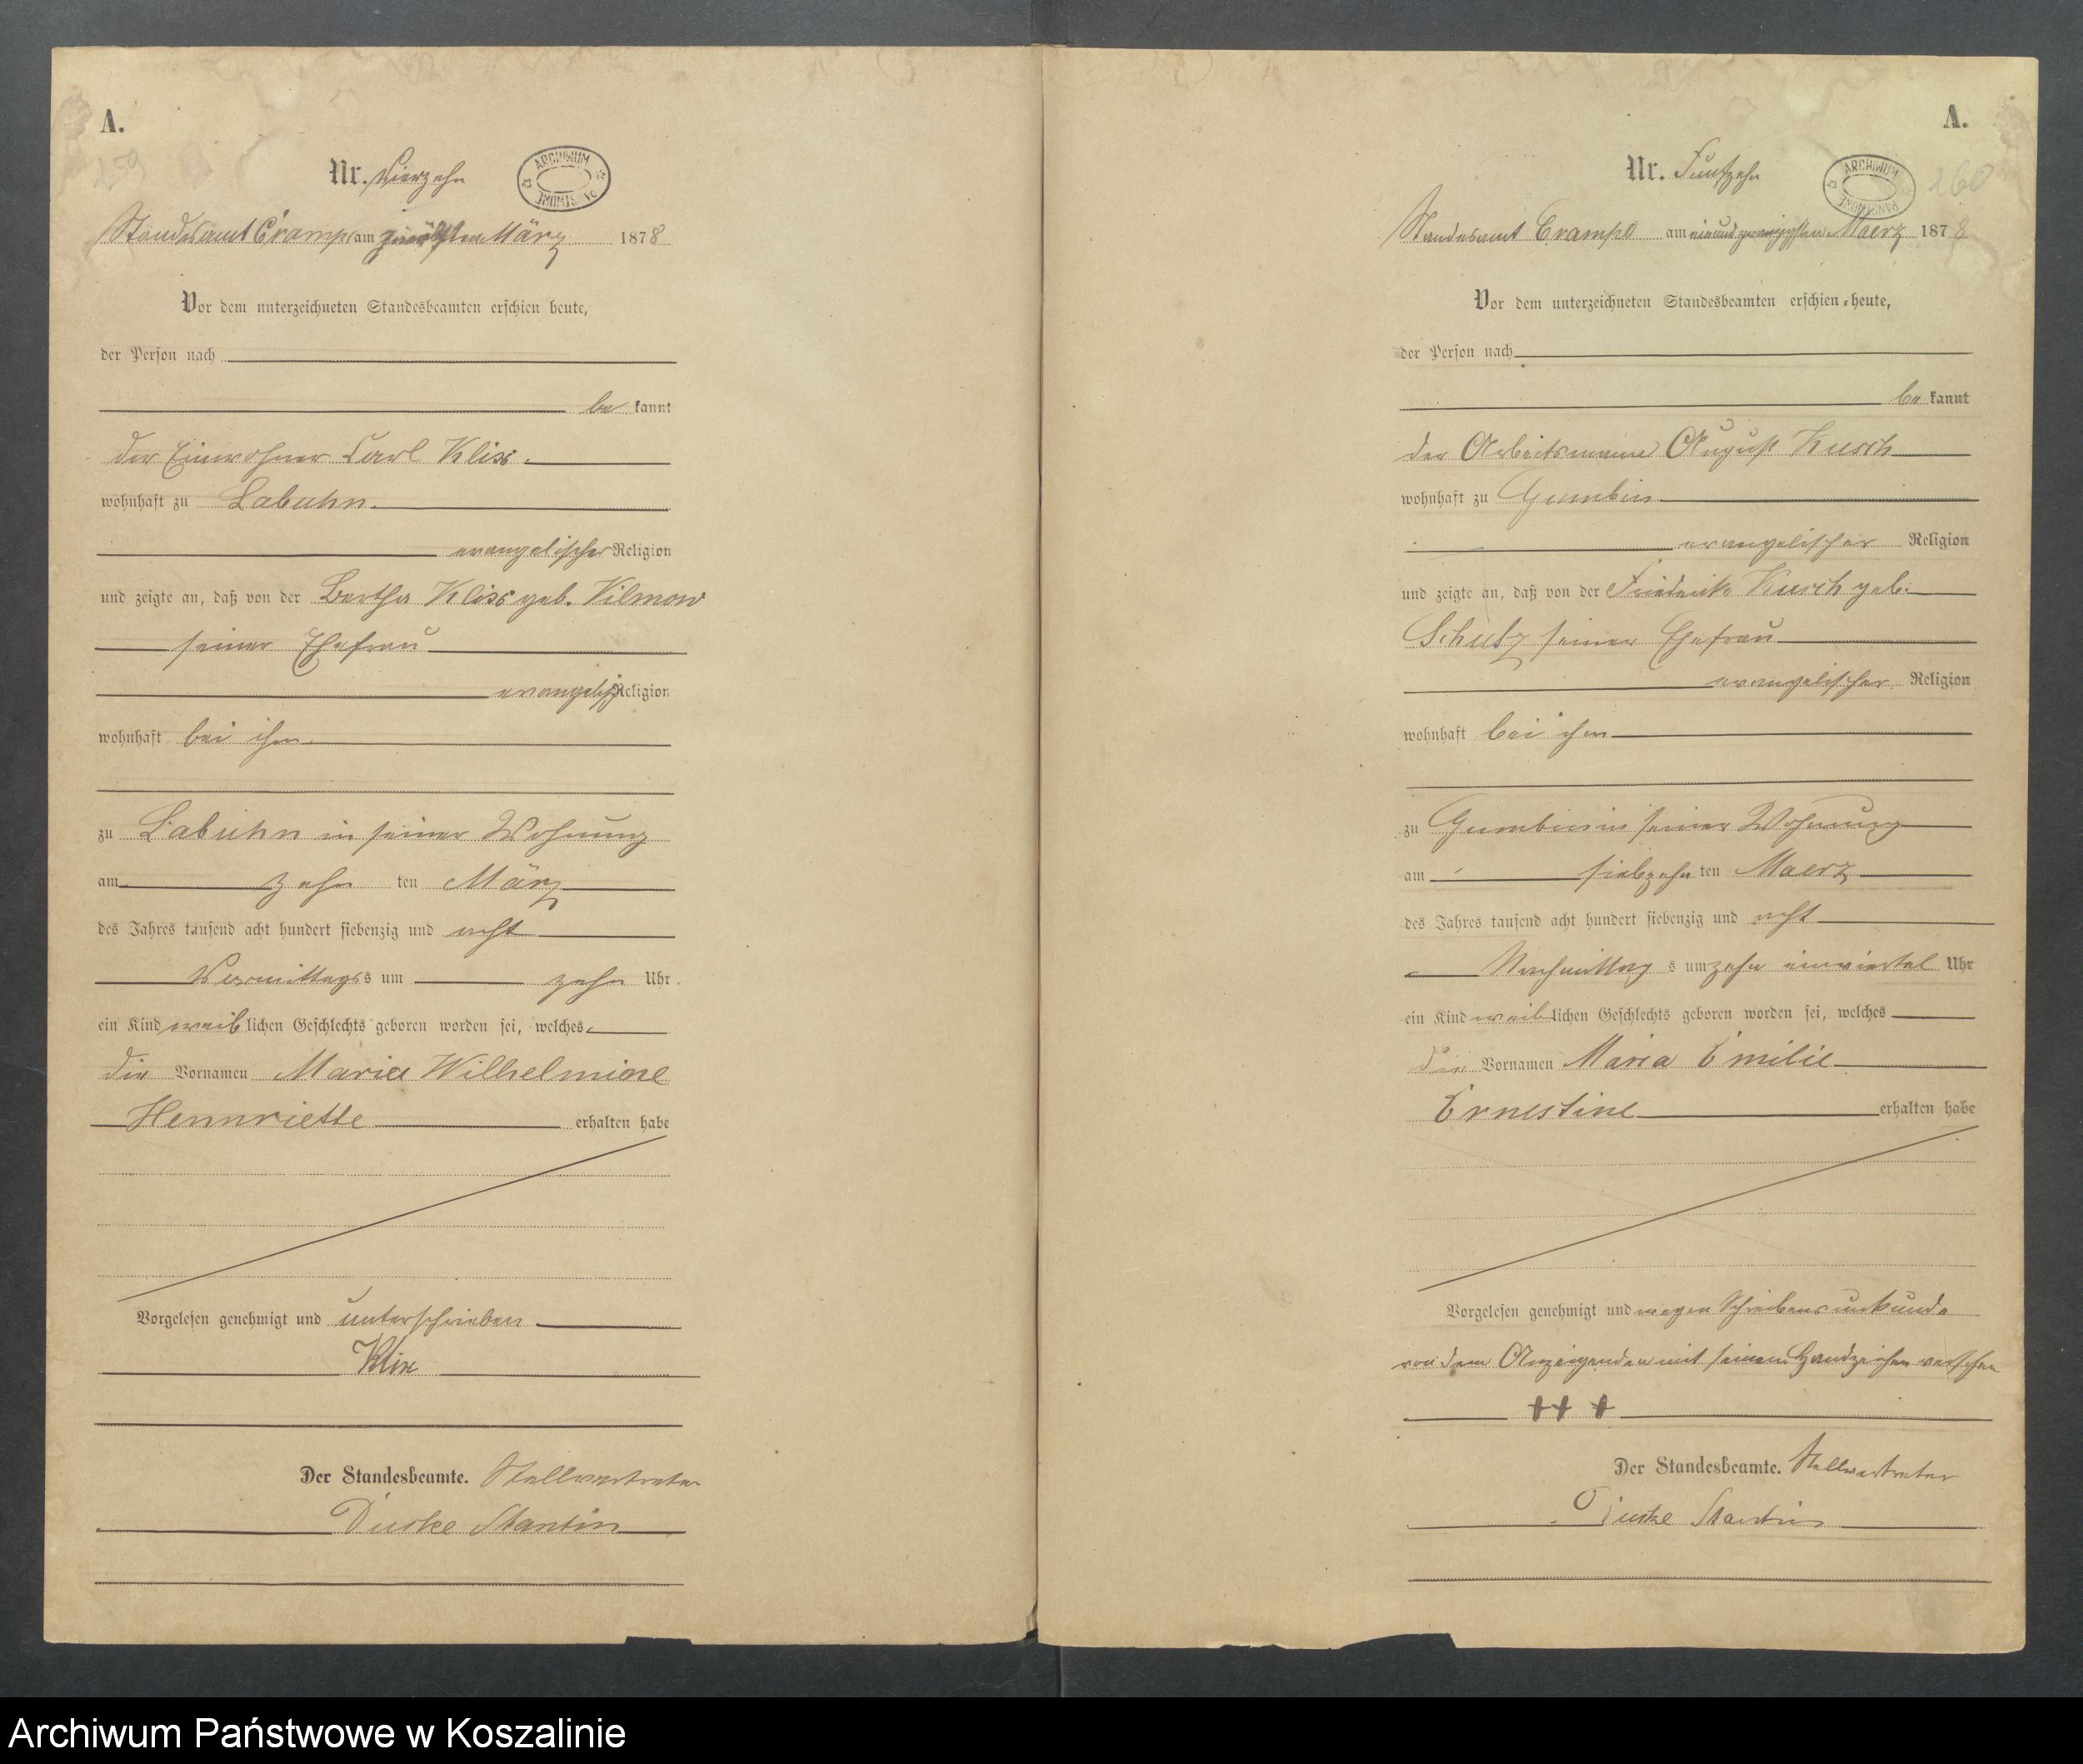 A.
259
Nr. Vierzehn
ARCHIWUM
Standesamt Crampe am zwölften März 1878
Vor dem unterzeichneten Standesbeamten erschien heute,
der Person nach
be kannt
der Einwohner Carl Kliss.
wohnhaft zu Labuhn.
evangelischer Religion
und zeigte an, daß von der Bertha Kliss geb. Vilmow
seiner Ehefrau
evangelisch Religion
wohnhaft bei ihm
zu Labuhn in seiner Wohnung
am zehn ten März
des Jahres tausend acht hundert siebenzig und acht
Vormittags s um zehn Uhr.
ein Kind weib lichen Geschlechts geboren worden sei, welches
die Vornamen Maria Wilhelmine
Hennriette erhalten habe
Vorgelesen genehmigt und unterschrieben
Klix
Der Standesbeamte. Stellvertreter
Stantin
A.
260
Nr. Funfzehn
ARCHIWUM
Standesamt Crampe am einundzwanzigsten Maerz 1878
Vor dem unterzeichneten Standesbeamten erschien heute,
der Person nach
be kannt
der Arbeitsmann August Kusch
wohnhaft zu Gumbin
evangelischer Religion
und zeigte an, daß von der Friederike Kusch geb.
Schulz seiner Ehefrau
evangelischer Religion
wohnhaft bei ihm
zu Gumbin in seiner Wohnung
am siebzehn ten Maerz
des Jahres tausend acht hundert siebenzig und acht
Nachmittag s um zehn einviertel Uhr
ein Kind weib lichen Geschlechts geboren worden sei, welches
die Vornamen Maria Emilie
Ernestine erhalten habe
Vorgelesen genehmigt und wegen Schreibensunkunde
von dem Anzeigenden mit seinem Handzeichen versehen
+++
Der Standesbeamte. Stellvertreter
Stantin
Archiwum Państwowe w Koszalinie